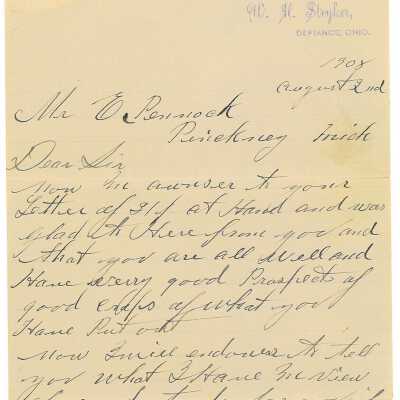 W. H. Stryker,
DEFIANCE, OHIO.
1908
August 2nd
Mr E Pennock
Pinckney Mich
Dear Sir
Now in answer to your
Letter of 31st at Hand and was
glad to Here from you and
that you are all well and
Have very good Prospects of
good crops of what you
Have Put out
Now I will endever to tell
you what I Have in view